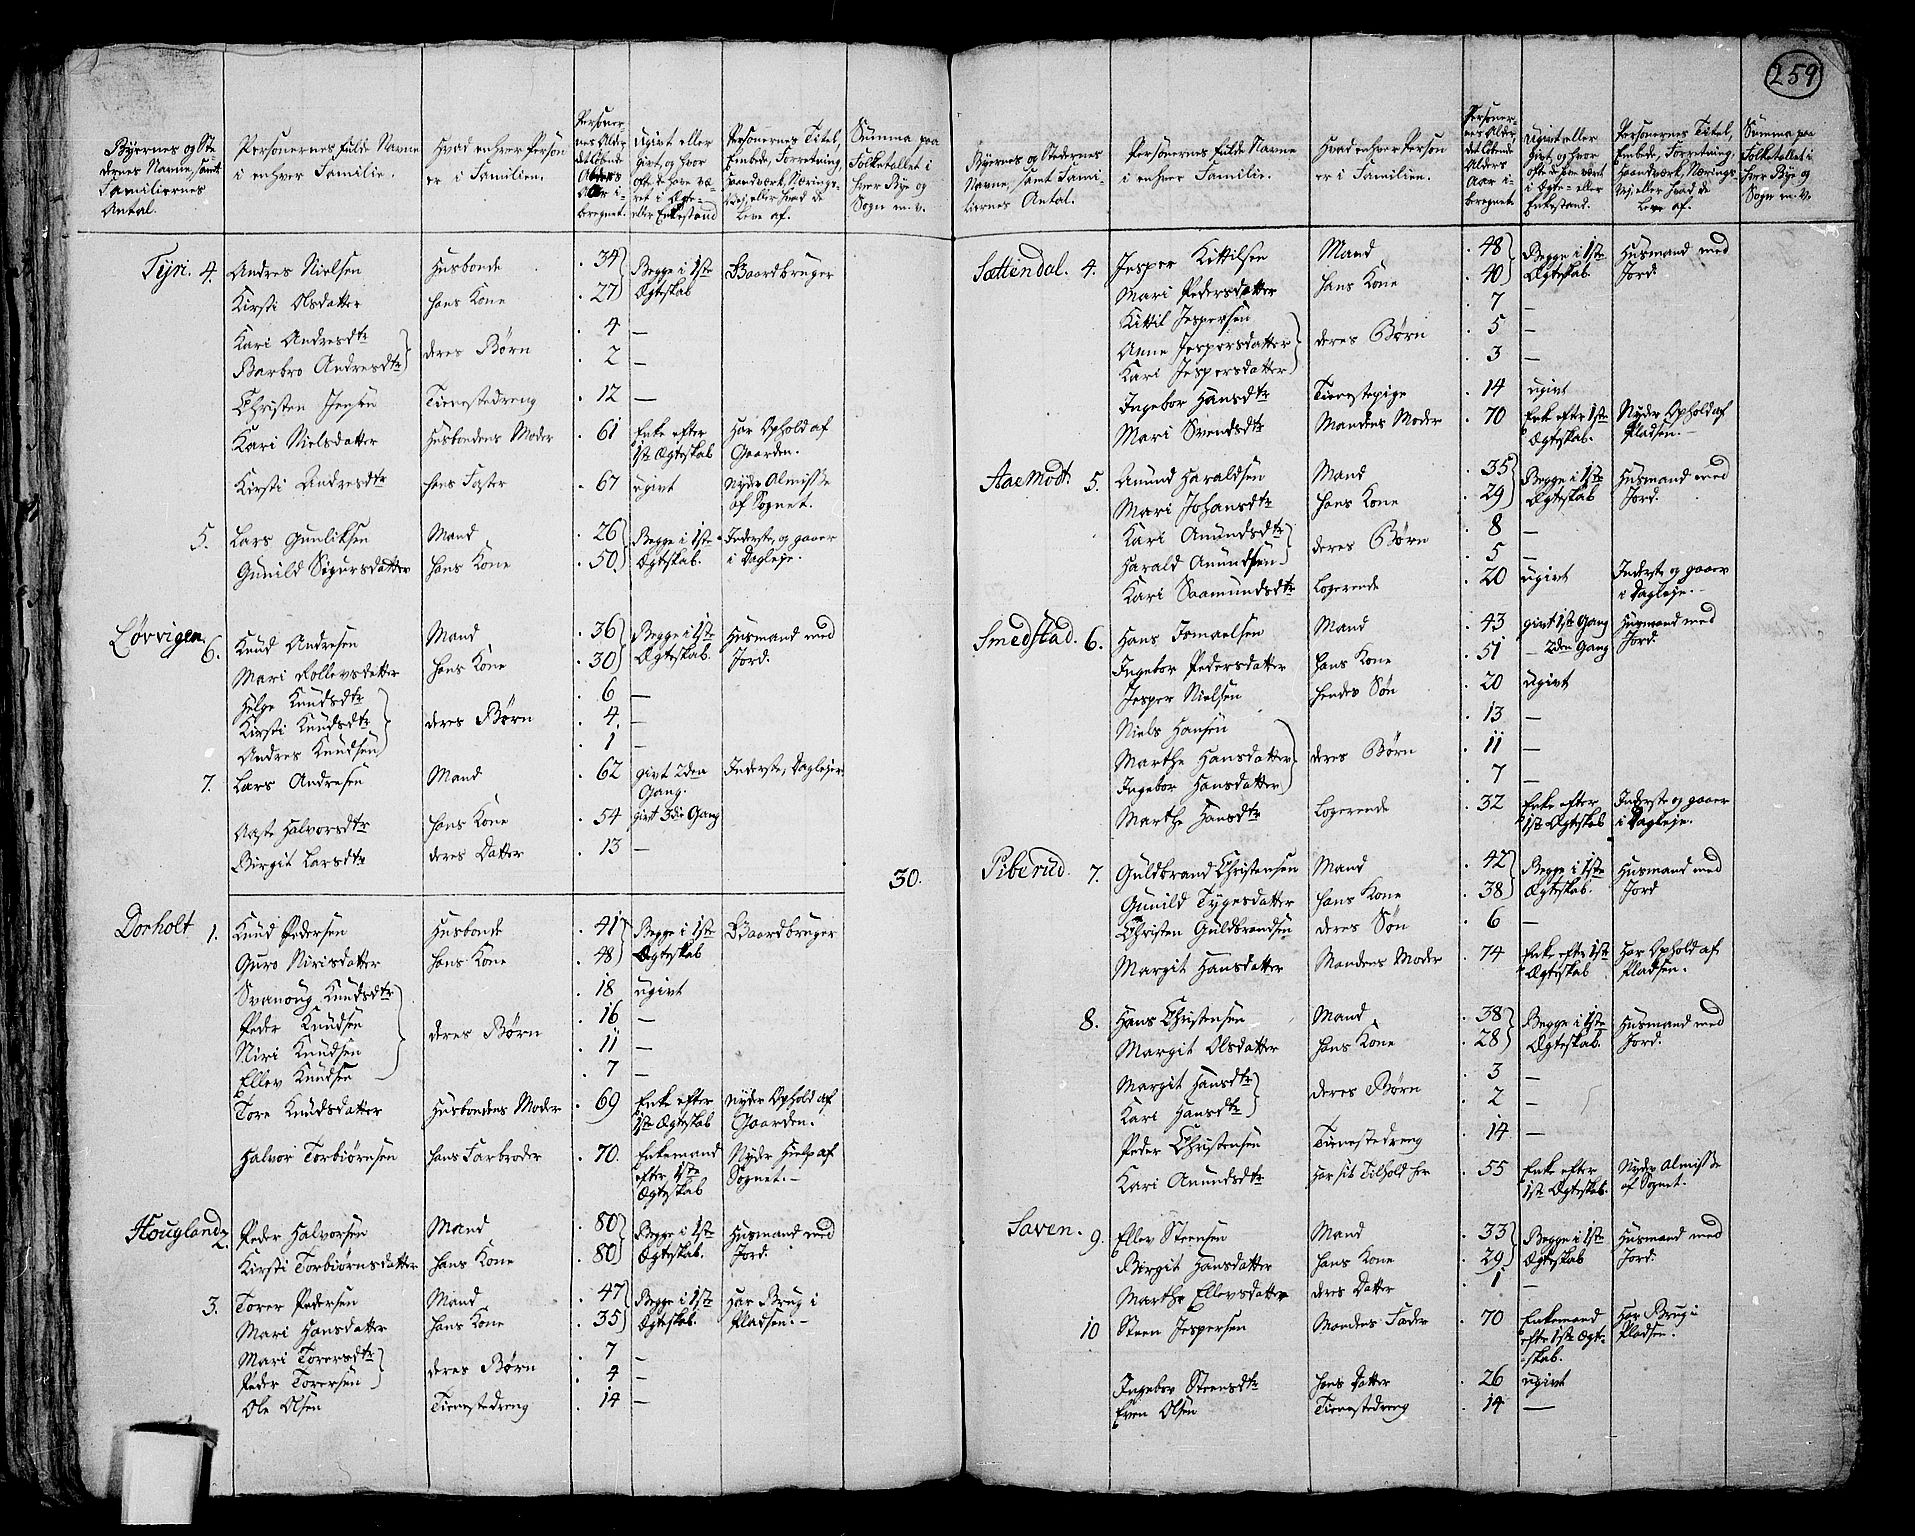 259
Byernes og Ste
dernes Navne, samt
Familiernes
Antal.
Personernes fulde Navne
i enhver Familie.
Hvad enhver Person
er i Familien.
Personer-
nes Alder,
det løbende
Alders
Aar i-
beregnet.
Ugivt eller
givt, og hvor
ofte de have væ-
ret i Ægte-
eller Enkestand
Personernes Titel,
Embede, Forretning,
Haandværk, Nærings-
vej, eller hvad de
leve af.
Summa paa
Folketallet i
hver Bye og
Sogn m. v.
Tyri. 4. Andres Nielsen Husbonde 34 Begge i 1ste Gaardbruger
Kirsti Olsdatter hans Kone 27 Ægteskab
Kari Andresdtr 4 —
Barbro Andresdtr deres Børn 2 —
Christen Jensen Tienestedreng 12 —
Kari Nielsdatter Husbondens Moder 61 Enke efter Har Ophold af
1ste Ægteskab Gaarden.
Kirsti Andresdtr hans Faster 67 ugivt Nyder Almisse
af Sognet.
5. Lars Gunliksen Mand 26 Begge i 1ste Inderste, og gaaer
Gunild Sigursdatter hans Kone 50 Ægteskab. i Dagleje
Løvvigen 6. Knud Andresen Mand 36 Begge i 1ste Husmand med
Mari Rollevsdatter hans Kone 30 Ægteskab. Jord.
Helge Knudsdtr 6 —
Kirsti Knudsdtr deres Børn 4. —
Andres Knudsen 1 —
7. Lars Andresen Mand 62 givt 2den Inderste, Daglejer
Gang.
Aaste Halvorsdtr hans Kone 54 givt 3die Gang
Birgit Larsdtr deres Datter 13 —
30.
Dorholt 1. Knud Pedersen Husbonde 41 Begge i 1ste Gaardbruger
Guro Nirisdatter hans Kone 48 Ægteskab
Svanoug Knudsdtr 18 ugivt
Peder Knudsen 16 —
Niri Knudsen deres Børn 11 —
Ellev Knudsen 7 —
Tore Knudsdatter Husbondens Moder 69 Enke efter nyder Ophold af
1ste Ægteskab Gaarden.
Halvor Torbiørnsen hans Farbroder 70. Enkemand Nyder Hielp af
efter 1ste Sognet.—
Ægteskab
Hougland 2. Peder Halvorsen Mand 80 Begge i 1ste Husmand med
Kirsti Torbiørnsdatter hans Kone 80 Ægteskab. Jord.
3. Torer Pedersen Mand 47 Begge i 1ste Har Brug i
Mari Hansdatter hans Kone 35 Ægteskab. Pladsen.—
Mari Torersdtr 7 —
Peder Torersen deres Børn 4 —
Ole Olsen Tienestedreng 14 —
Byernes og Stedernes
Navne, samt Fami-
liernes Antal.
Personernes fulde Navne
i enhver Familie.
Hvad enhver Person
er i Familien.
Personer-
nes Alder,
det løbende
Alders
Aar i-
beregnet
Ugivt eller
givt, og hvor
ofte de have været
i Ægte- eller
Enkestand.
Personernes Titel,
Embede, Forretning,
Haandværk, Nærings-
vej, eller hvad de
leve af.
Summa paa
Folketallet i
hver Bye og
Sogn m. v.
Sættendal. 4. Jesper Kittilsen Mand 48 Begge i 1ste Husmand med
Mari Pedersdatter hans Kone 40 Ægteskab. Jord.
Kittil Jespersen 7 —
Anne Jespersdatter deres Børn 5 —
Kari Jespersdatter 3 —
Ingebor Hansdtr Tienestepige 14 ugivt
Mari Svendsdtr Mandens Moder 70 Enke efter 1ste Nyder Ophold af
Ægteskab. Pladsen.—
Aaemodt 5. Amund Haraldsen Mand 35 Begge i 1ste Husmand med
Mari Johansdtr hans Kone 29 Ægteskab Jord.
Kari Amundsdtr 8 —
Harald Amundsen deres Børn 5 —
Kari Saamundsdtr Logerende 20 ugivt Inderste og gaaer
i Dagleje.—
Smedstad. 6. Hans Ismaelsen Mand 43 givt 1ste Gang Husmand med
Ingebor Pedersdatter hans Kone 51 — 2den Gang Jord.
Jesper Nielsen hendes Søn 20 ugivt
Niels Hansen 13 —
Marthe Hansdatter deres Børn 11 —
Ingebor Hansdatter 7 —
Marthe Hansdtr Logerende 32 Enke efter Inderste og gaaer
1ste Ægteskab i Dagleje.
Piberud. 7. Guldbrand Christensen Mand 42 Begge i 1ste Husmand med
Gunild Tygesdatter hans Kone 38 Ægteskab. Jord
Christen Guldbrandsen deres Søn 6 —
Margit Hansdatter Mandens Moder 74 Enke efter 1ste Har Ophold af
Ægteskab Pladsen.
8. Hans Christensen Mand 38 Begge i 1ste Husmand med
Margit Olsdatter hans Kone 28 Ægteskab. Jord.
Margit Hansdtr 3 —
Kari Hansdtr deres Børn 2 —
Peder Christensen Tienestedreng 14 —
Kari Amundsdtr Har sit Tilhold her 55 Enke efter Nyder Almisse
1ste Ægteskab. af Sognet.
Saven. 9. Ellev Steensen Mand 33 Begge i 1ste Husmand med
Birgit Hansdatter hans Kone 29 Ægteskab Jord.
Marthe Ellevsdatter deres Datter 1 —
10 Steen Jespersen Mandens Fader 70 Enkemand Har Brug i
efter 1ste Ægte- Pladsen.
skab.
Ingebor Steensdtr hans Datter 26 ugivt
Even Olsen Tienestedreng 14 —